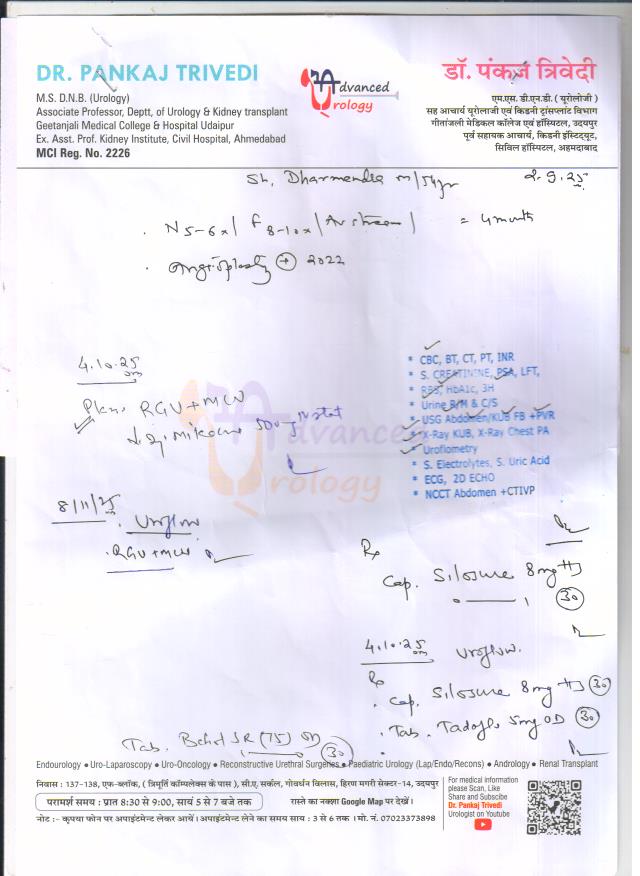 DR. PANKAJ TRIVEDI
M.S. D.N.B. (Urology)
Associate Professor, Deptt. of Urology & Kidney transplant
Geetanjali Medical College & Hospital Udaipur
Ex. Asst. Prof. Kidney Institute, Civil Hospital, Ahmedabad
MCI Reg. No. 2226
Advanced
Urology
डॉ. पंकज त्रिवेदी
एम.एस. डी.एन.डी. ( यूरोलोजी )
सह आचार्य यूरोलोजी एवं किडनी ट्रांसप्लांट विभाग
गीतांजली मेडिकल कॉलेज एवं हॉस्पिटल, उदयपुर
पूर्व सहायक आचार्य, किडनी इंस्टिट्यूट,
सिविल हॉस्पिटल, अहमदाबाद
Sh. Dharmendra m/54yr 2.9.25
N 5-6x/ F 8-10x/ = 4 month
Angioplasty + 2022
* CBC, BT, CT, PT, INR
* S. CREATININE, PSA, LFT,
* RBS, HbA1c, 3H
* Urine R/M & C/S
* USG Abdomen/KUB FB +PVR
* X-Ray KUB, X-Ray Chest PA
* Uroflometry
* S. Electrolytes, S. Uric Acid
* ECG, 2D ECHO
* NCCT Abdomen +CTIVP
4.10.25
Plan RGU + MCU
Advanced
Urology
8/11/25
Uroflow
RGU + MCU
Rx
Cap. Silosure 8mg HS
30
4.10.25 Uroflow.
Rx
Cap. Silosure 8mg HS 30
Tab. Tadaflo 5mg OD 30
Tab. SR (75) 30
Endourology ● Uro-Laparoscopy ● Uro-Oncology ● Reconstructive Urethral Surgeries ● Paediatric Urology (Lap/Endo/Recons) ● Andrology ● Renal Transplant
निवास : 137-138, एफ-ब्लॉक, ( त्रिमूर्ति कॉम्पलेक्स के पास ), सी.ए. सर्कल, गोवर्धन विलास, हिरण मगरी सेक्टर-14, उदयपुर
परामर्श समय : प्रात 8:30 से 9:00, सायं 5 से 7 बजे तक
रास्ते का नक्शा Google Map पर देखें।
नोट :- कृपया फोन पर अपाइंटमेन्ट लेकर आयें। अपाइंटमेन्ट लेने का समय सायः : 3 से 6 तक । मो. नं. 07023373898
For medical information
please Scan, Like
Share and Subscibe
Dr. Pankaj Trivedi
Urologist on Youtube